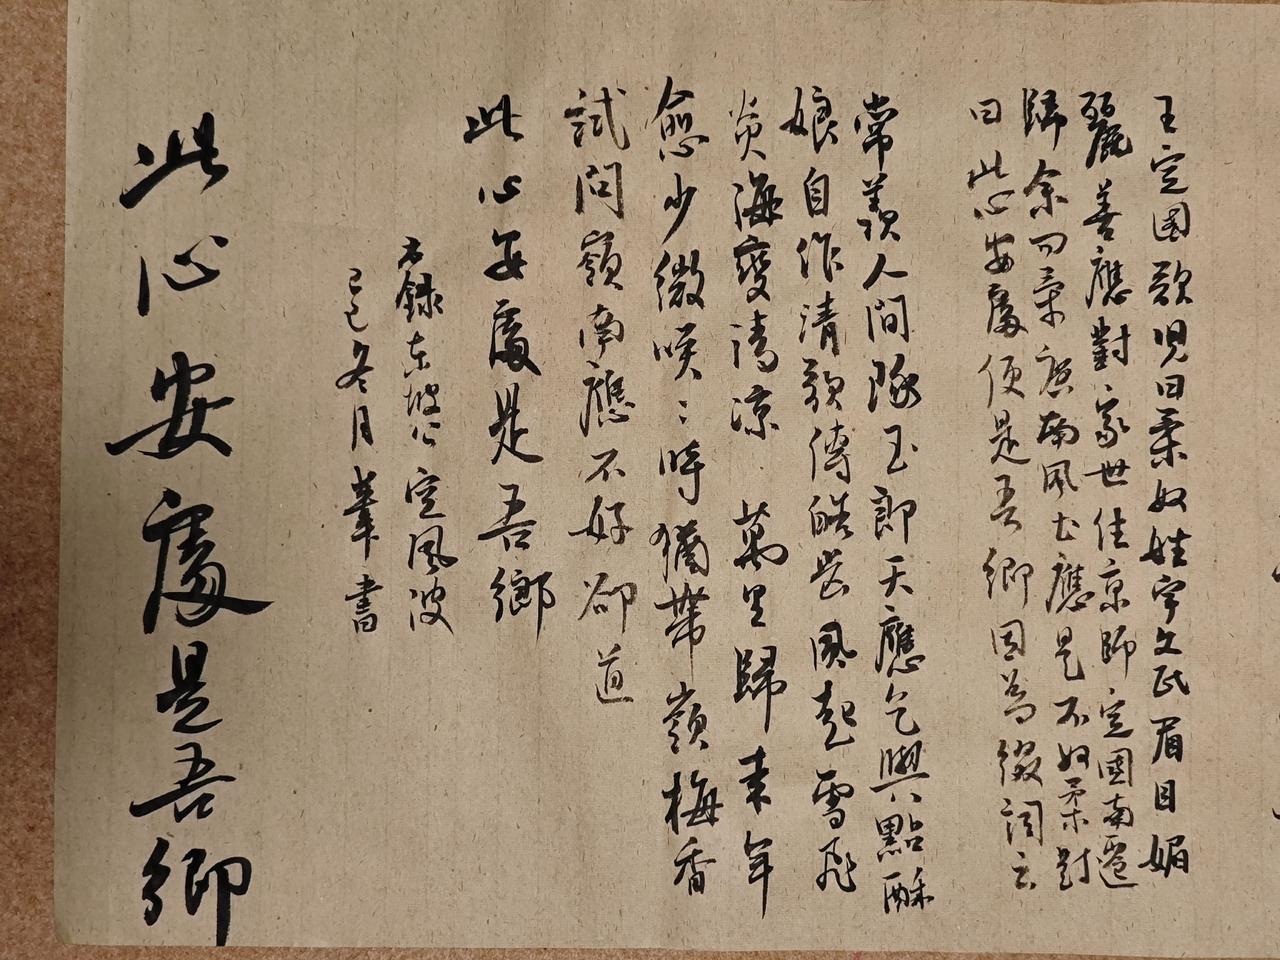 王定國歌児曰柔奴姓宇文氏眉目媚
麗善應對家世住京師定國南遷
歸余問柔廣南風土應是不好柔對
曰此心安處便是吾鄉因為綴詞云
常羨人間琢玉郎天應乞與點酥
娘自作清歌傳皓齒風起雪飛
炎海變清涼萬里歸來年
愈少微笑〻時猶帶嶺梅香
試問嶺南應不好卻道
此心安處是吾鄉
錄東坡公定風波
己巳冬月葦書
此心安處是吾鄉